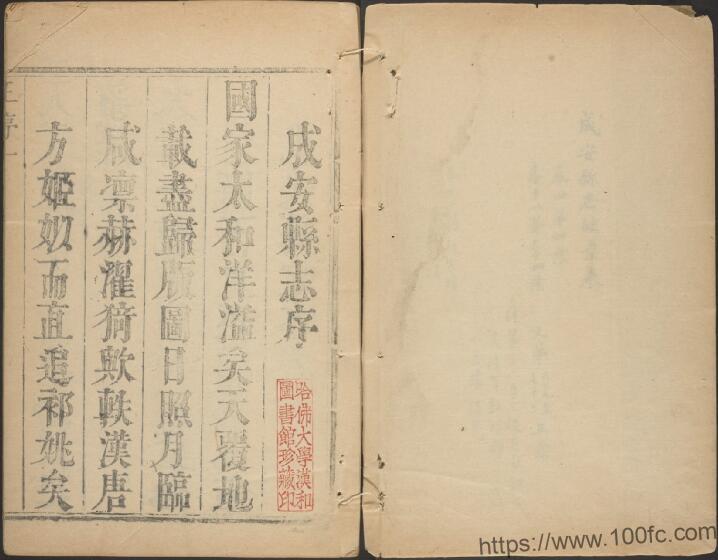 成安縣志序
國家太和洋溢矣天覆地
載盡歸版圖日照月臨
咸凜赫濯猗歟軼漢唐
方姬姒而直追祁姚矣
哈佛大學漢和
圖書館珍藏印
https://www.100fc.com